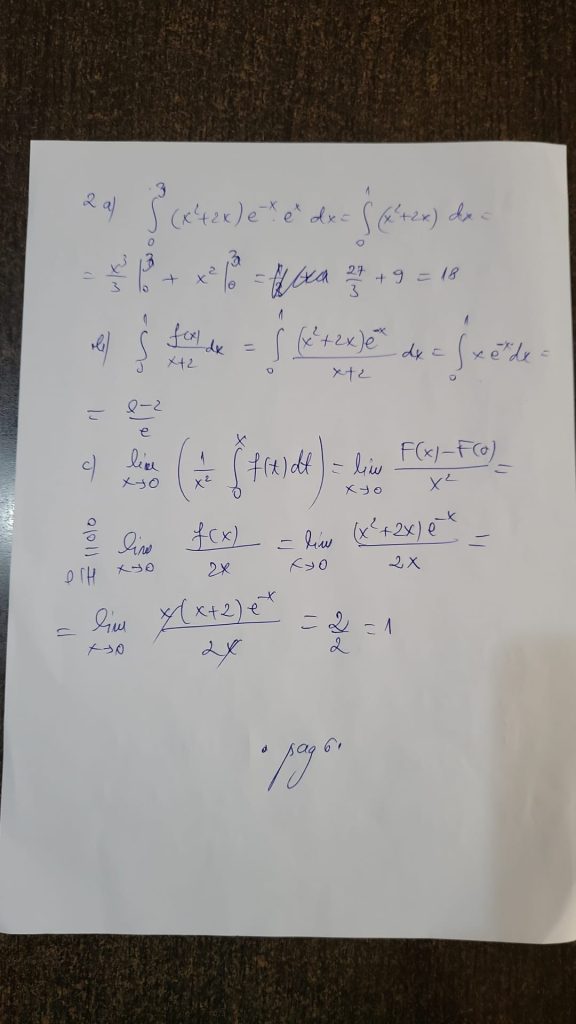 2 a) ∫₀³ (x²+2x) e⁻ˣ · eˣ dx = ∫₀¹ (x²+2x) dx =
= x³/3 |₀³ + x² |₀³ = 27/3 + 9 = 18
b) ∫₀¹ f(x)/(x+2) dx = ∫₀¹ (x²+2x)e⁻ˣ/(x+2) dx = ∫₀¹ x e⁻ˣ dx =
= (e-2)/e
c) lim x→0 (1/x² ∫₀ˣ f(t) dt) = lim x→0 (F(x)-F(0))/x² =
0/0 = l'H lim x→0 f(x)/2x = lim x→0 (x²+2x)e⁻ˣ/2x =
= lim x→0 x(x+2)e⁻ˣ/2x = 2/2 = 1
· pag 6 ·